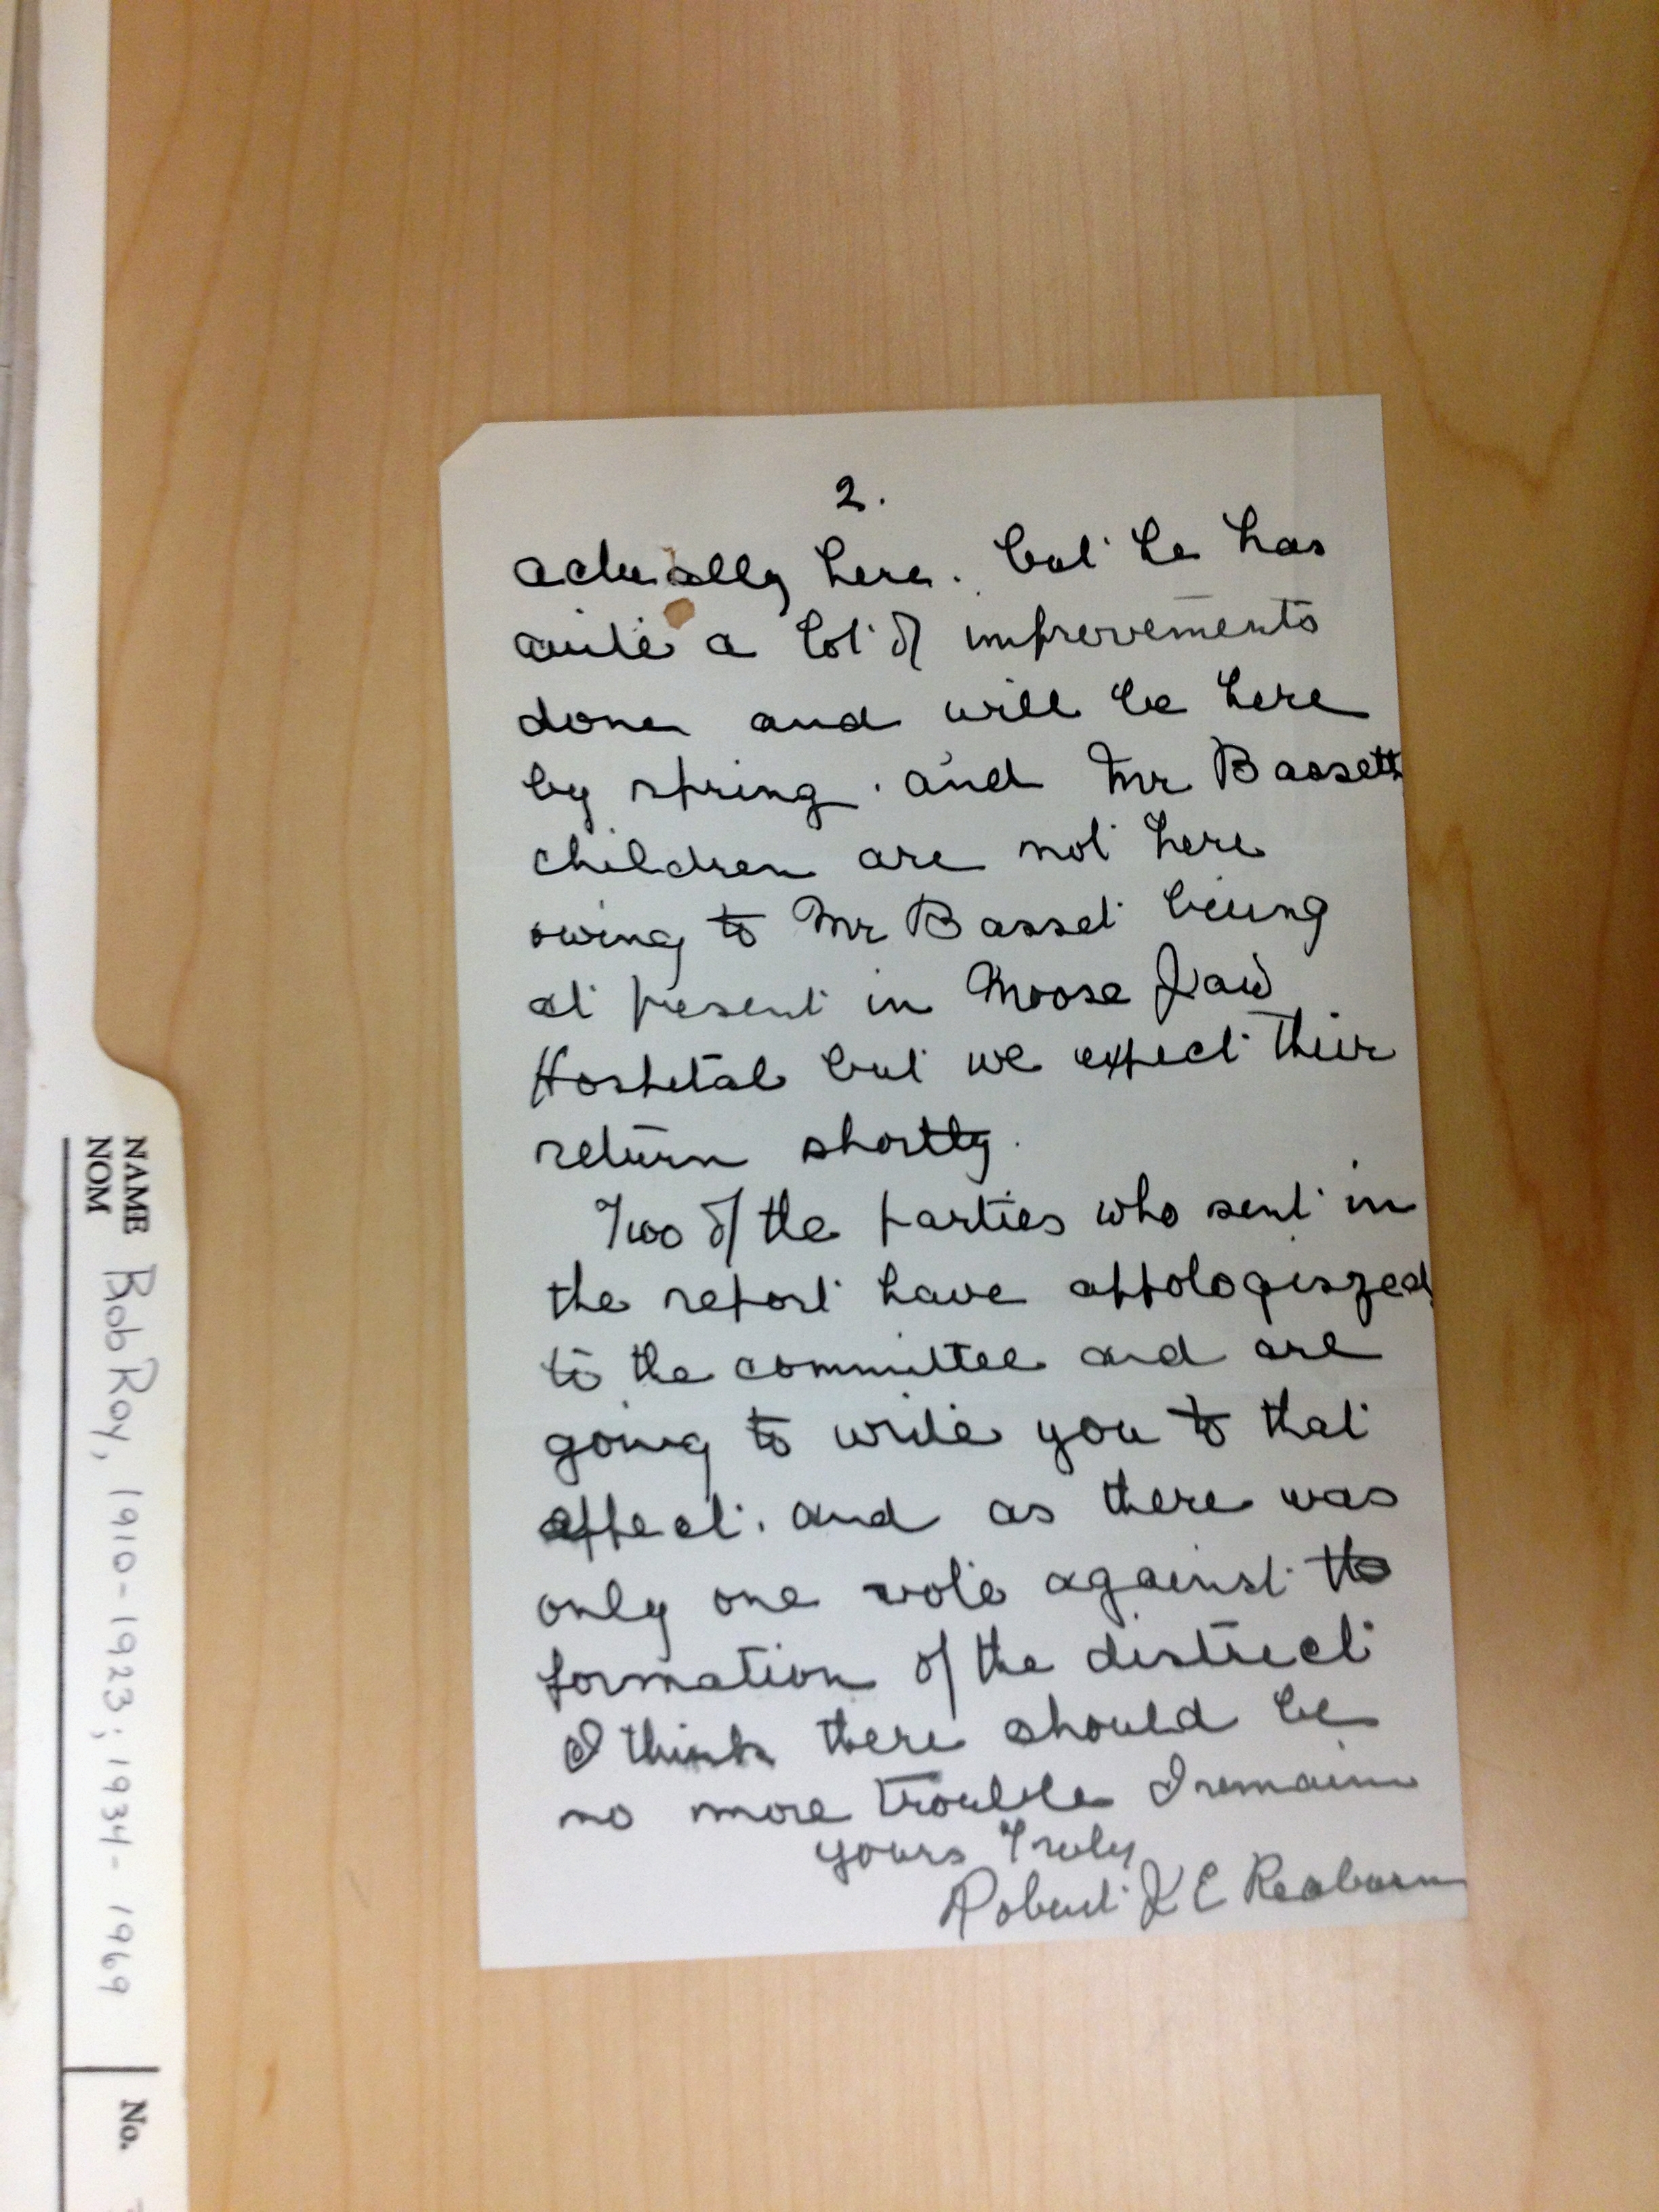 2.
actually here. but he has
quite a lot of improvements
done and will be here
by spring. and Mr Bassett
children are not here
owing to Mr Basset being
at present in Moose Jaw
Hospital but we expect their
return shortly.
Two of the parties who sent in
the report have appologiszed
to the committee and are
going to write you to that
effect. and as there was
only one vote against the
formation of the district
I think there should be
no more trouble I remain
yours Truly
Robert J E Reaburn
NAME
NOM
Bob Roy, 1910-1923; 1934-1969
No.